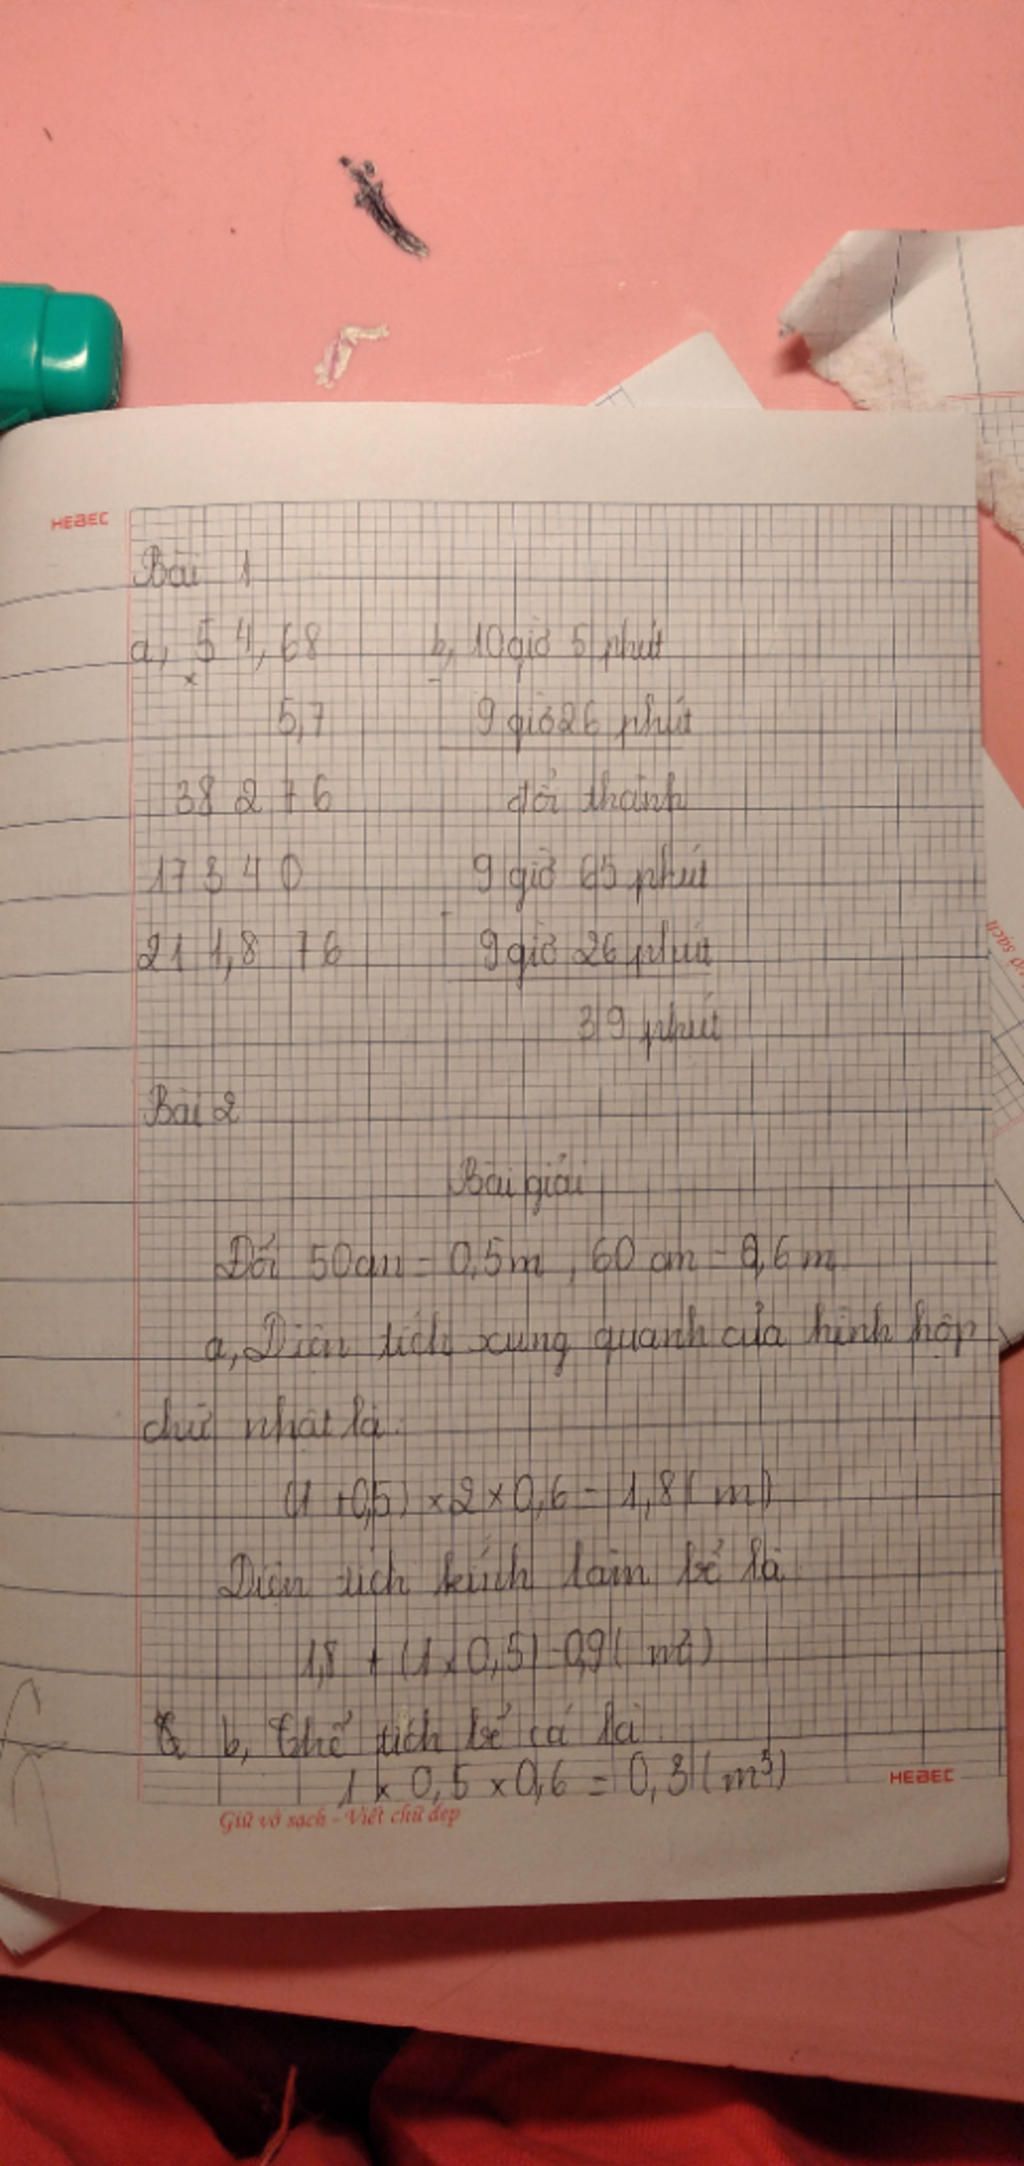 HEBEC
Bài 1
a, 54,68 b, 10 giờ 5 phút
×
5,7 9 giờ 26 phút
38 2 7 6 đổi thành
17 3 4 0 9 giờ 65 phút
21 1,8 76 9 giờ 26 phút
39 phút
Bài 2
Bài giải
Đổi 50cm = 0,5m, 60 cm = 0,6 m
a, Diện tích xung quanh của hình hộp
chữ nhật là
(1 + 0,5) × 2 × 0,6 = 1,8 (m)
Diện tích kính làm bể là
1,8 + (1 × 0,5) = 0,9 (m²)
b, Thể tích bể cá là
1 × 0,5 × 0,6 = 0,3 (m³)
HEBEC
Giữ vở sạch - Viết chữ đẹp